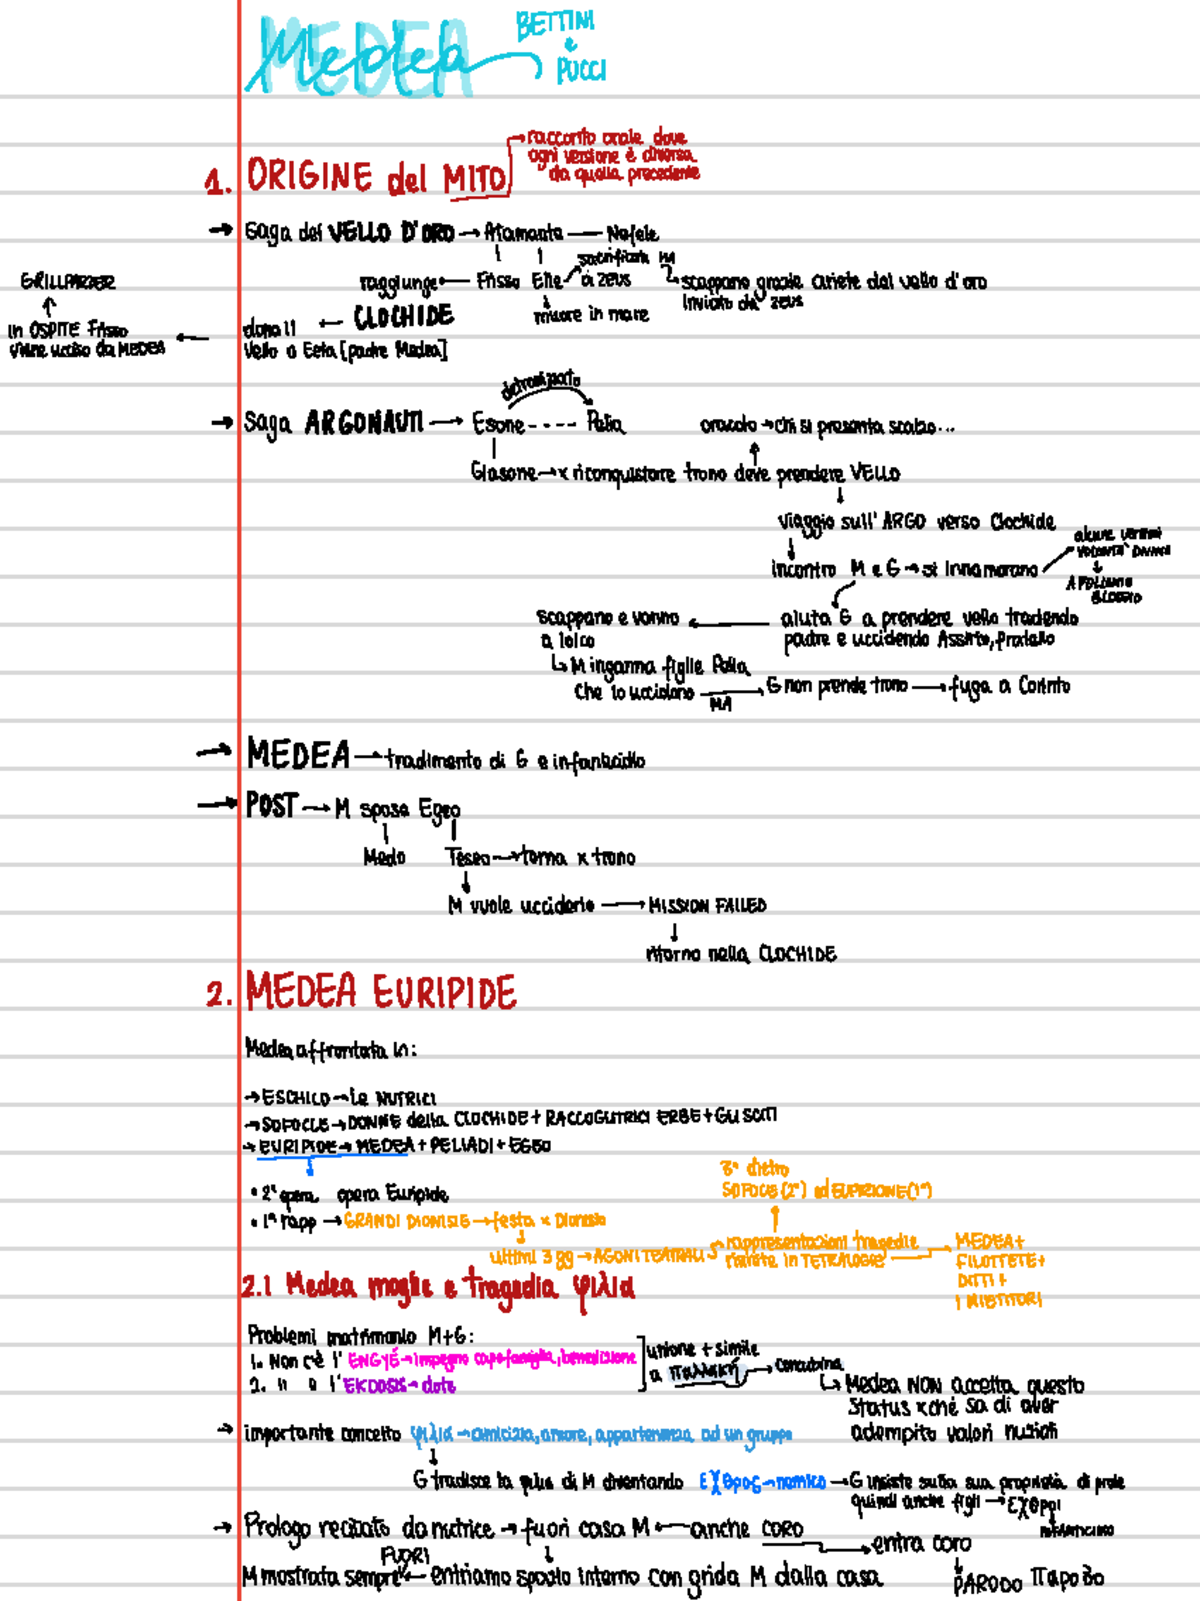 Medea
BETTINI
e
PUCCI
1. ORIGINE del MITO
→ racconto orale dove
ogni versione è diversa
da quella precedente
→ Saga del VELLO D'ORO → Atamante — Nefele
sacrificati M
raggiunge ← Frisso Elle a ZEUS scappano grazie ariete dal vello d'oro
inviato da zeus
GRILLPARZER
CLOCHIDE
muore in mare
in OSPITE Frisso
viene ucciso da MEDEA
dona il ←
vello a Eeta [padre Medea]
detronizzato
→ Saga ARGONAUTI → Esone ---- Pelia
oracolo → chi si presenta scalzo...
Giasone → x riconquistare trono deve prendere VELLO
viaggio sull'ARGO verso Clochide
alcune versioni
VOLONTA' DIVINA
incontro M e G → si innamorano
APOLLONIO
scappano e vanno
a Iolco
aiuta G a prendere vello tradendo
padre e uccidendo Assirto, fratello
↳ M inganna figlie Pelia
che lo uccidono → G non prende trono → fuga a Corinto
MA
→ MEDEA → tradimento di G e infanticidio
→ POST → M sposa Egeo
Medo Teseo → torna x trono
M vuole ucciderlo → MISSION FAILED
ritorno nella CLOCHIDE
2. MEDEA EURIPIDE
Medea affrontata in:
→ ESCHILO → Le NUTRICI
→ SOFOCLE → DONNE della CLOCHIDE + RACCOGLITRICI ERBE + GLI SCITI
→ EURIPIDE → MEDEA + PELIADI + EGEO
3ª dietro
SOFOCLE (2°) ed EUFRIONE (1°)
• 2ª opera opera Euripide
• 1ª rapp → GRANDI DIONISIE → festa x Dioniso
ultimi 3 gg → AGONI TEATRALI
rappresentazioni tragedie
riunite in TETRALOGIE
MEDEA +
FILOTTETE +
DITTI +
I MIETITORI
2.1 Medea moglie e tragedia φιλία
Problemi matrimonio M+G:
1. Non c'è l'ENGYÉ → impegno capofamiglia, benedizione
2. " " l'EKDOSIS → dote
unione + simile
a παλλακή → concubina
↳ Medea NON accetta questo
status xché sa di aver
adempito valori nuziali
→ importante concetto φιλία → amicizia, amore, appartenenza ad un gruppo
G tradisce la φιλία di M diventando ΕΧθρος → nemico → G insiste sulla sua proprietà di prole
quindi anche figli → ΕΧθροι
INFANTICIDIO
→ Prologo recitato da nutrice → fuori casa M ← anche CORO → entra coro
FUORI
M mostrata sempre ← entriamo spazio interno con grida M dalla casa
PARODO Παροδο